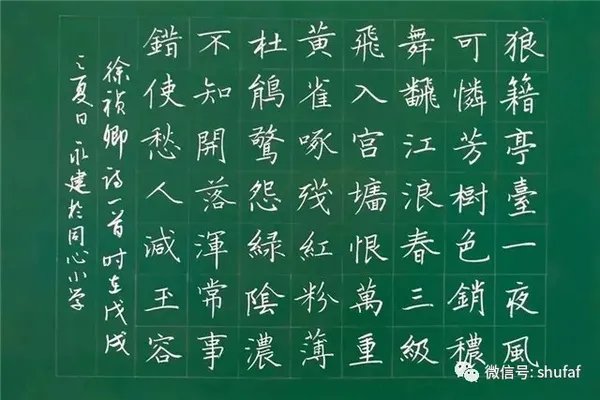 狼籍亭臺一夜風
可憐芳樹色銷穠
舞飜江浪春三級
飛入宮墻恨萬重
黃雀啄殘紅粉薄
杜鵑驚怨綠陰濃
不知開落渾常事
錯使愁人減玉容
徐禎卿詩一首时在戊戌
之夏日永建於同心小学
微信号: shufaf